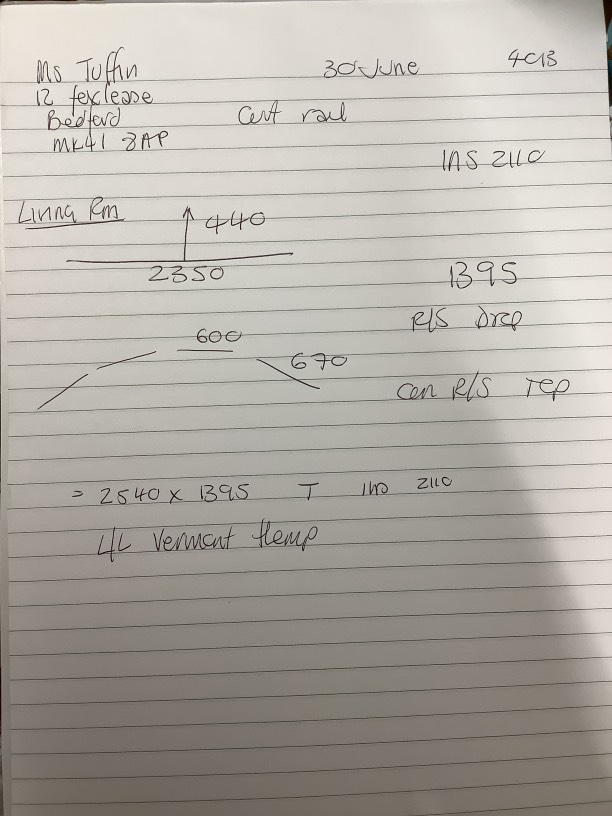 Ms Tuffin 30 June 4013
12 foxlease
Bedford Curt rail
MK41 8AP
INS 2110
Living Rm 440
2350 1395
R/S Drop
600
670
Con R/S rep
= 2540 x 1395 T INS 2110
4L Vermont Hemp